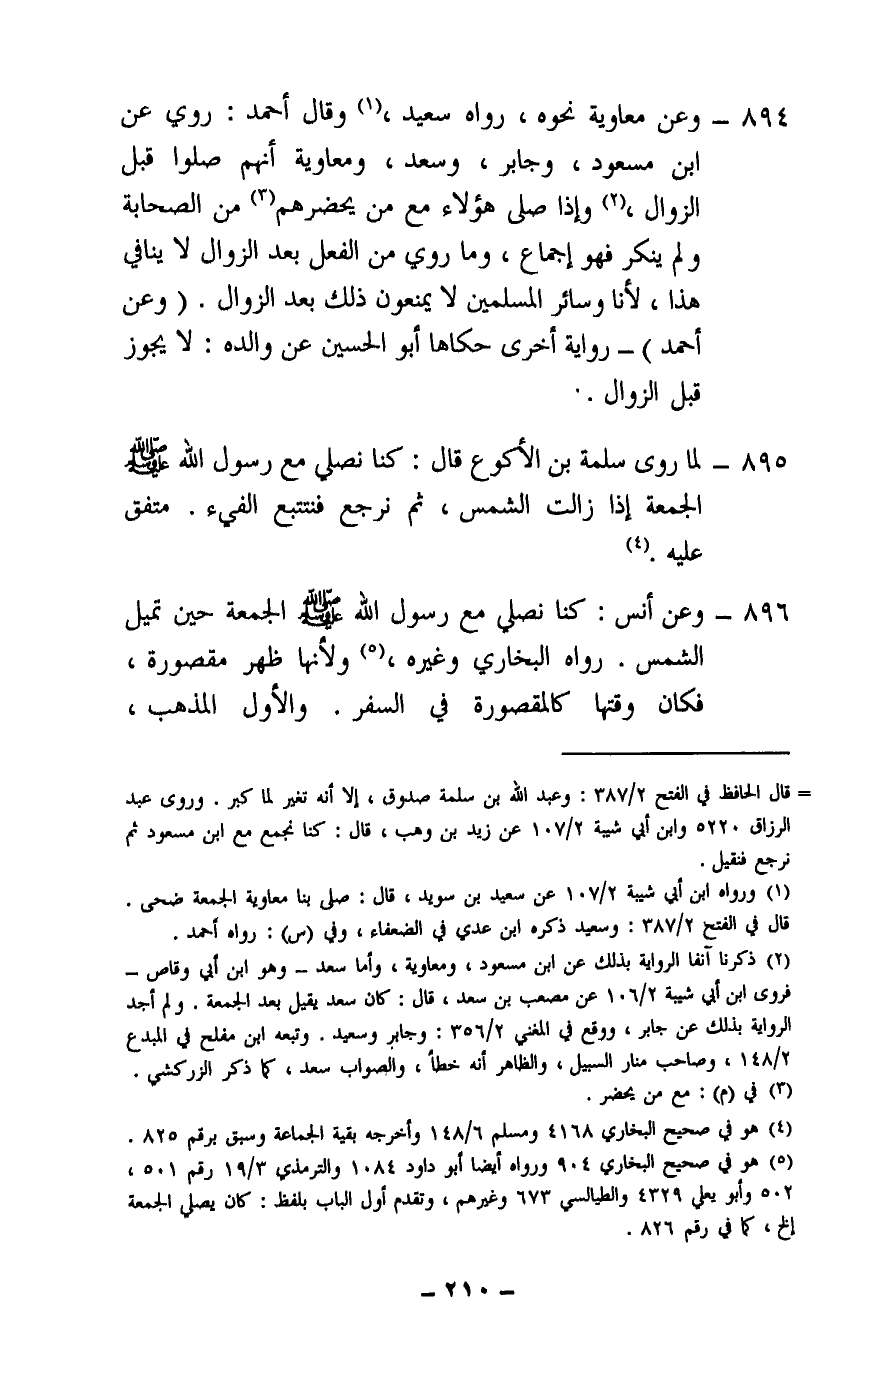 ٨٩٤ ــ وعن معاوية نحوه ، رواه سعيد ،(١) وقال أحمد : روي عن
ابن مسعود ، وجابر ، وسعد ، ومعاوية أنهم صلوا قبل
الزوال ،(٢) وإذا صلى هؤلاء مع من يحضرهم(٣) من الصحابة
ولم ينكر فهو إجماع ، وما روي من الفعل بعد الزوال لا ينافي
هذا ، لأنا وسائر المسلمين لا يمنعون ذلك بعد الزوال . ( وعن
أحمد ) ــ رواية أخرى حكاها أبو الحسين عن والده : لا يجوز
قبل الزوال .
٨٩٥ ــ لما روى سلمة بن الأكوع قال : كنا نصلي مع رسول الله ﷺ
الجمعة إذا زالت الشمس ، ثم نرجع فنتتبع الفيء . متفق
عليه .(٤)
٨٩٦ ــ وعن أنس : كنا نصلي مع رسول الله ﷺ الجمعة حين تميل
الشمس . رواه البخاري وغيره ،(٥) ولأنها ظهر مقصورة ،
فكان وقتها كالمقصورة في السفر . والأول المذهب ،
= قال الحافظ في الفتح ٣٨٧/٢ : وعبد الله بن سلمة صدوق ، إلا أنه تغير لما كبر . وروى عبد
الرزاق ٥٢٢٠ وابن أبي شيبة ١٠٧/٢ عن زيد بن وهب ، قال : كنا نجمع مع ابن مسعود ثم
نرجع فنقيل .
(١) ورواه ابن أبي شيبة ١٠٧/٢ عن سعيد بن سويد ، قال : صلى بنا معاوية الجمعة ضحى .
قال في الفتح ٣٨٧/٢ : وسعيد ذكره ابن عدي في الضعفاء ، وفي (س) : رواه أحمد .
(٢) ذكرنا آنفا الرواية بذلك عن ابن مسعود ، ومعاوية ، وأما سعد ــ وهو ابن أبي وقاص ــ
فروى ابن أبي شيبة ١٠٦/٢ عن مصعب بن سعد ، قال : كان سعد يقيل بعد الجمعة . ولم أجد
الرواية بذلك عن جابر ، ووقع في المغني ٣٥٦/٢ : وجابر وسعيد . وتبعه ابن مفلح في المبدع
١٤٨/٢ ، وصاحب منار السبيل ، والظاهر أنه خطأ ، والصواب سعد ، كما ذكر الزركشي .
(٣) في (م) : مع من يحضر .
(٤) هو في صحيح البخاري ٤١٦٨ ومسلم ١٤٨/٦ وأخرجه بقية الجماعة وسبق برقم ٨٢٥ .
(٥) هو في صحيح البخاري ٩٠٤ ورواه أيضا أبو داود ١٠٨٤ والترمذي ١٩/٣ رقم ٥٠١ ،
٥٠٢ وأبو يعلي ٤٣٢٩ والطيالسي ٦٧٣ وغيرهم ، وتقدم أول الباب بلفظ : كان يصلي الجمعة
إلخ ، كما في رقم ٨٢٦ .
ــ ٢١٠ ــ